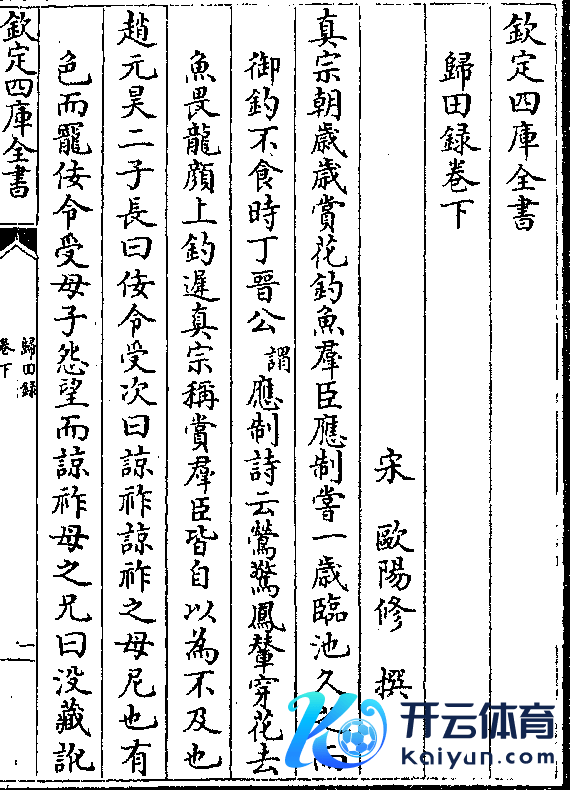 欽定四庫全書
歸田録卷下
宋 歐陽修 撰
真宗朝歳歳賞花釣魚羣臣應制嘗一歳臨池久之而
御釣不食時丁晉公謂應制詩云鶯驚鳳輦穿花去
魚畏龍顔上釣遲真宗稱賞羣臣皆自以為不及也
趙元昊二子長曰佞令受次曰諒祚諒祚之母尼也有
色而寵佞令受母子怨望而諒祚母之兄曰没藏訛
欽定四庫全書
歸田録
卷下
一
开云体育
kaiyun.com